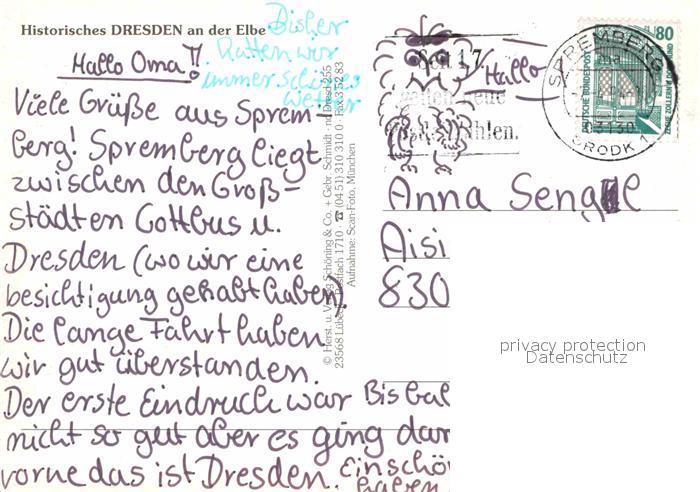 Historisches DRESDEN an der Elbe
Bisher
hatten wir
immer schönes
Wetter
Hallo Oma!!
Viele Grüße aus Sprem-
berg! Spremberg liegt
zwischen den Groß-
städten Cottbus u.
Dresden (wo wir eine
besichtigung gehabt haben).
Die lange Fahrt haben
wir gut überstanden.
Der erste Eindruck war
nicht so gut aber es ging
vorne das ist Dresden.
Bis bal
dar
Einschö
haben
© Herst. u. Verlag Schöning & Co. + Gebr. Schmidt
23568 Lübeck Postfach 1710 · ☎ (04 51) 310 310 0 · Fax 3 52 83
Aufnahme: Scan-Foto, München
Seit 1.7.
gelten neue
Hallo
SPREMBERG
03130
BRODK 1
80
DEUTSCHE BUNDESPOST
ZECHE ZOLLERN II DORTMUND
Anna Sengle
Aisi
830
privacy protection
Datenschutz